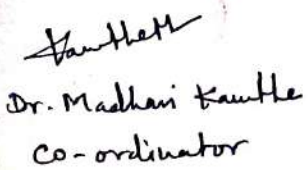 Dr. Madhavi Kamthe
Co-ordinator